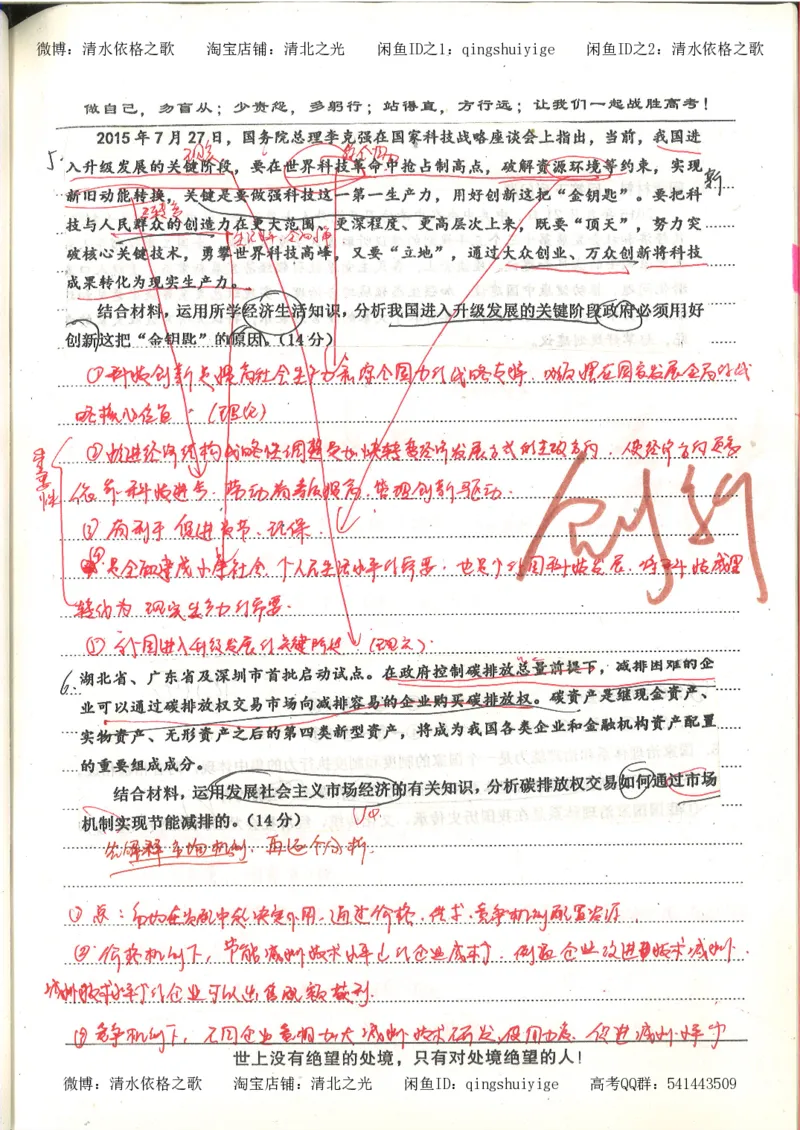 微博：清水依格之歌 淘宝店铺：清北之光 闲鱼ID之1：qingshuiyige 闲鱼ID之2：清水依格之歌
做自己，勿盲从；少责怨，多躬行；站得直，方行远；让我们一起战胜高考！
5.
2015年7月27日，国务院总理李克强在国家科技战略座谈会上指出，当前，我国进
入升级发展的关键阶段，要在世界科技革命中抢占制高点，破解资源环境等约束，实现
新
新旧动能转换，关键是要做强科技这一第一生产力，用好创新这把“金钥匙”。要把科
技与人民群众的创造力在更大范围、更深程度、更高层次上来，既要“顶天”，努力突
破核心关键技术，勇攀世界科技高峰，又要“立地”，通过大众创业、万众创新将科技
成果转化为现实生产力。
结合材料，运用所学经济生活知识，分析我国进入升级发展的关键阶段政府必须用好
创新这把“金钥匙”的原因。（14分）
①科技创新是提高社会生产力和综合国力的战略支撑，必须摆在国家发展全局的战
略核心位置。（理论）
重要性
②推进经济结构战略性调整是加快转变经济发展方式的主攻方向，使经济方向更多
依靠科技进步、劳动者素质提高、管理创新驱动.
③有利于促进资节、环保.
④是全面建成小康社会、个人民生活水平的需要.也是个对国科技发展、将科技成果
转化为现实生产力的需要.
创新
⑤我国进入升级发展的关键阶段（现实）.
6.
湖北省、广东省及深圳市首批启动试点。在政府控制碳排放总量前提下，减排困难的企
业可以通过碳排放权交易市场向减排容易的企业购买碳排放权。碳资产是继现金资产、
实物资产、无形资产之后的第四类新型资产，将成为我国各类企业和金融机构资产配置
的重要组成成分。
结合材料，运用发展社会主义市场经济的有关知识，分析碳排放权交易如何通过市场
机制实现节能减排的。（14分）
先解释市场机制，再逐个分析.
①总：市场在资配中起决定作用，通过价格、供求、竞争机制配置资源.
②价格机制下，节能减排技术水平↓的企业成本↑，倒逼企业改进技术减排.
减排技术水平↑的企业可以出售配额获利.
③竞争机制下，不同企业竞相加大减排技术研发、使用力度，促进减排水平↑
世上没有绝望的处境，只有对处境绝望的人！
微博：清水依格之歌 淘宝店铺：清北之光 闲鱼ID：qingshuiyige 高考QQ群：541443509